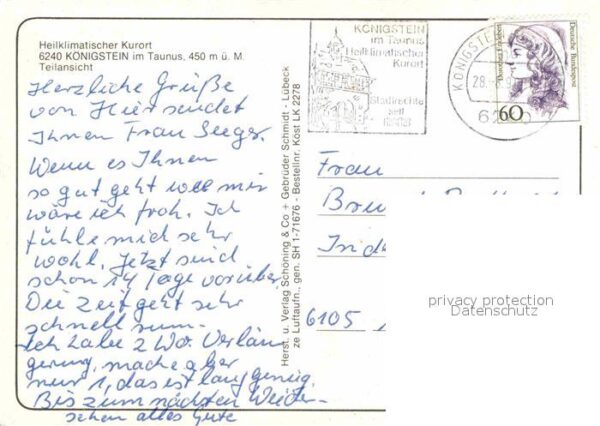 Heilklimatischer Kurort
6240 KÖNIGSTEIN im Taunus, 450 m ü. M.
Teilansicht
Herzliche Grüße
von Hier sendet
Ihnen Frau Seeger.
Wenn es Ihnen
so gut geht will mir
wäre ich froh. Ich
fühle mich sehr
wohl. Jetzt sind
schon 14 Tage vorüber
Die Zeit geht sehr
schnell rum.
Ich habe 2 Wo. Verlän
gerung, mache aber
nur 1, das ist lang genug.
Bis zum nächsten Wieder-
sehen alles Gute
Herst. u. Verlag Schöning & Co + Gebrüder Schmidt - Lübeck
ze Luftaufn., gen. SH 1-71676 - Bestellnr. Kost LK 2278
KÖNIGSTEIN
im Taunus
Heilklimatischer
Kurort
Stadtrechte
seit
1313
KÖNIGSTE
28.
62
Dorothea Erxleben
Deutsche Bundespost
60
Frau
Bru
Ind
6105
privacy protection
Datenschutz